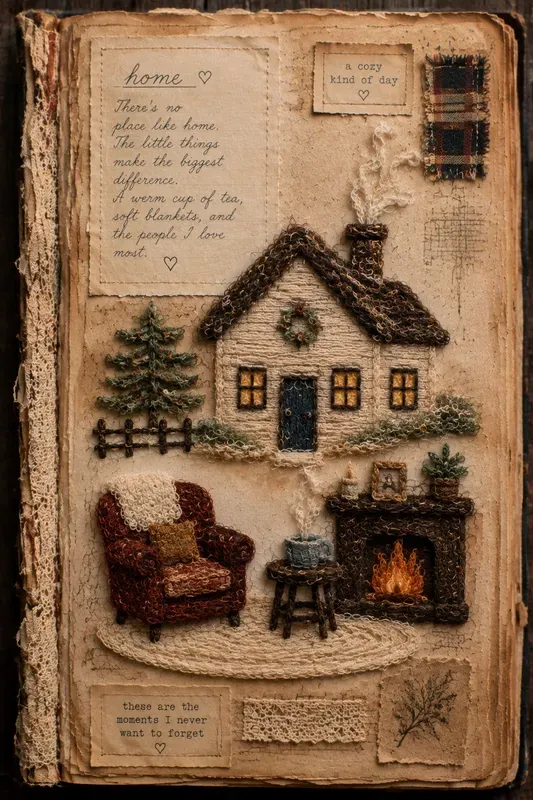 home ♡
There's no
place like home.
The little things
make the biggest
difference.
A werm cup of tea,
soft blankets, and
the people I love
most. ♡
a cozy
kind of day
♡
A
these are the
moments I never
want to forget
♡